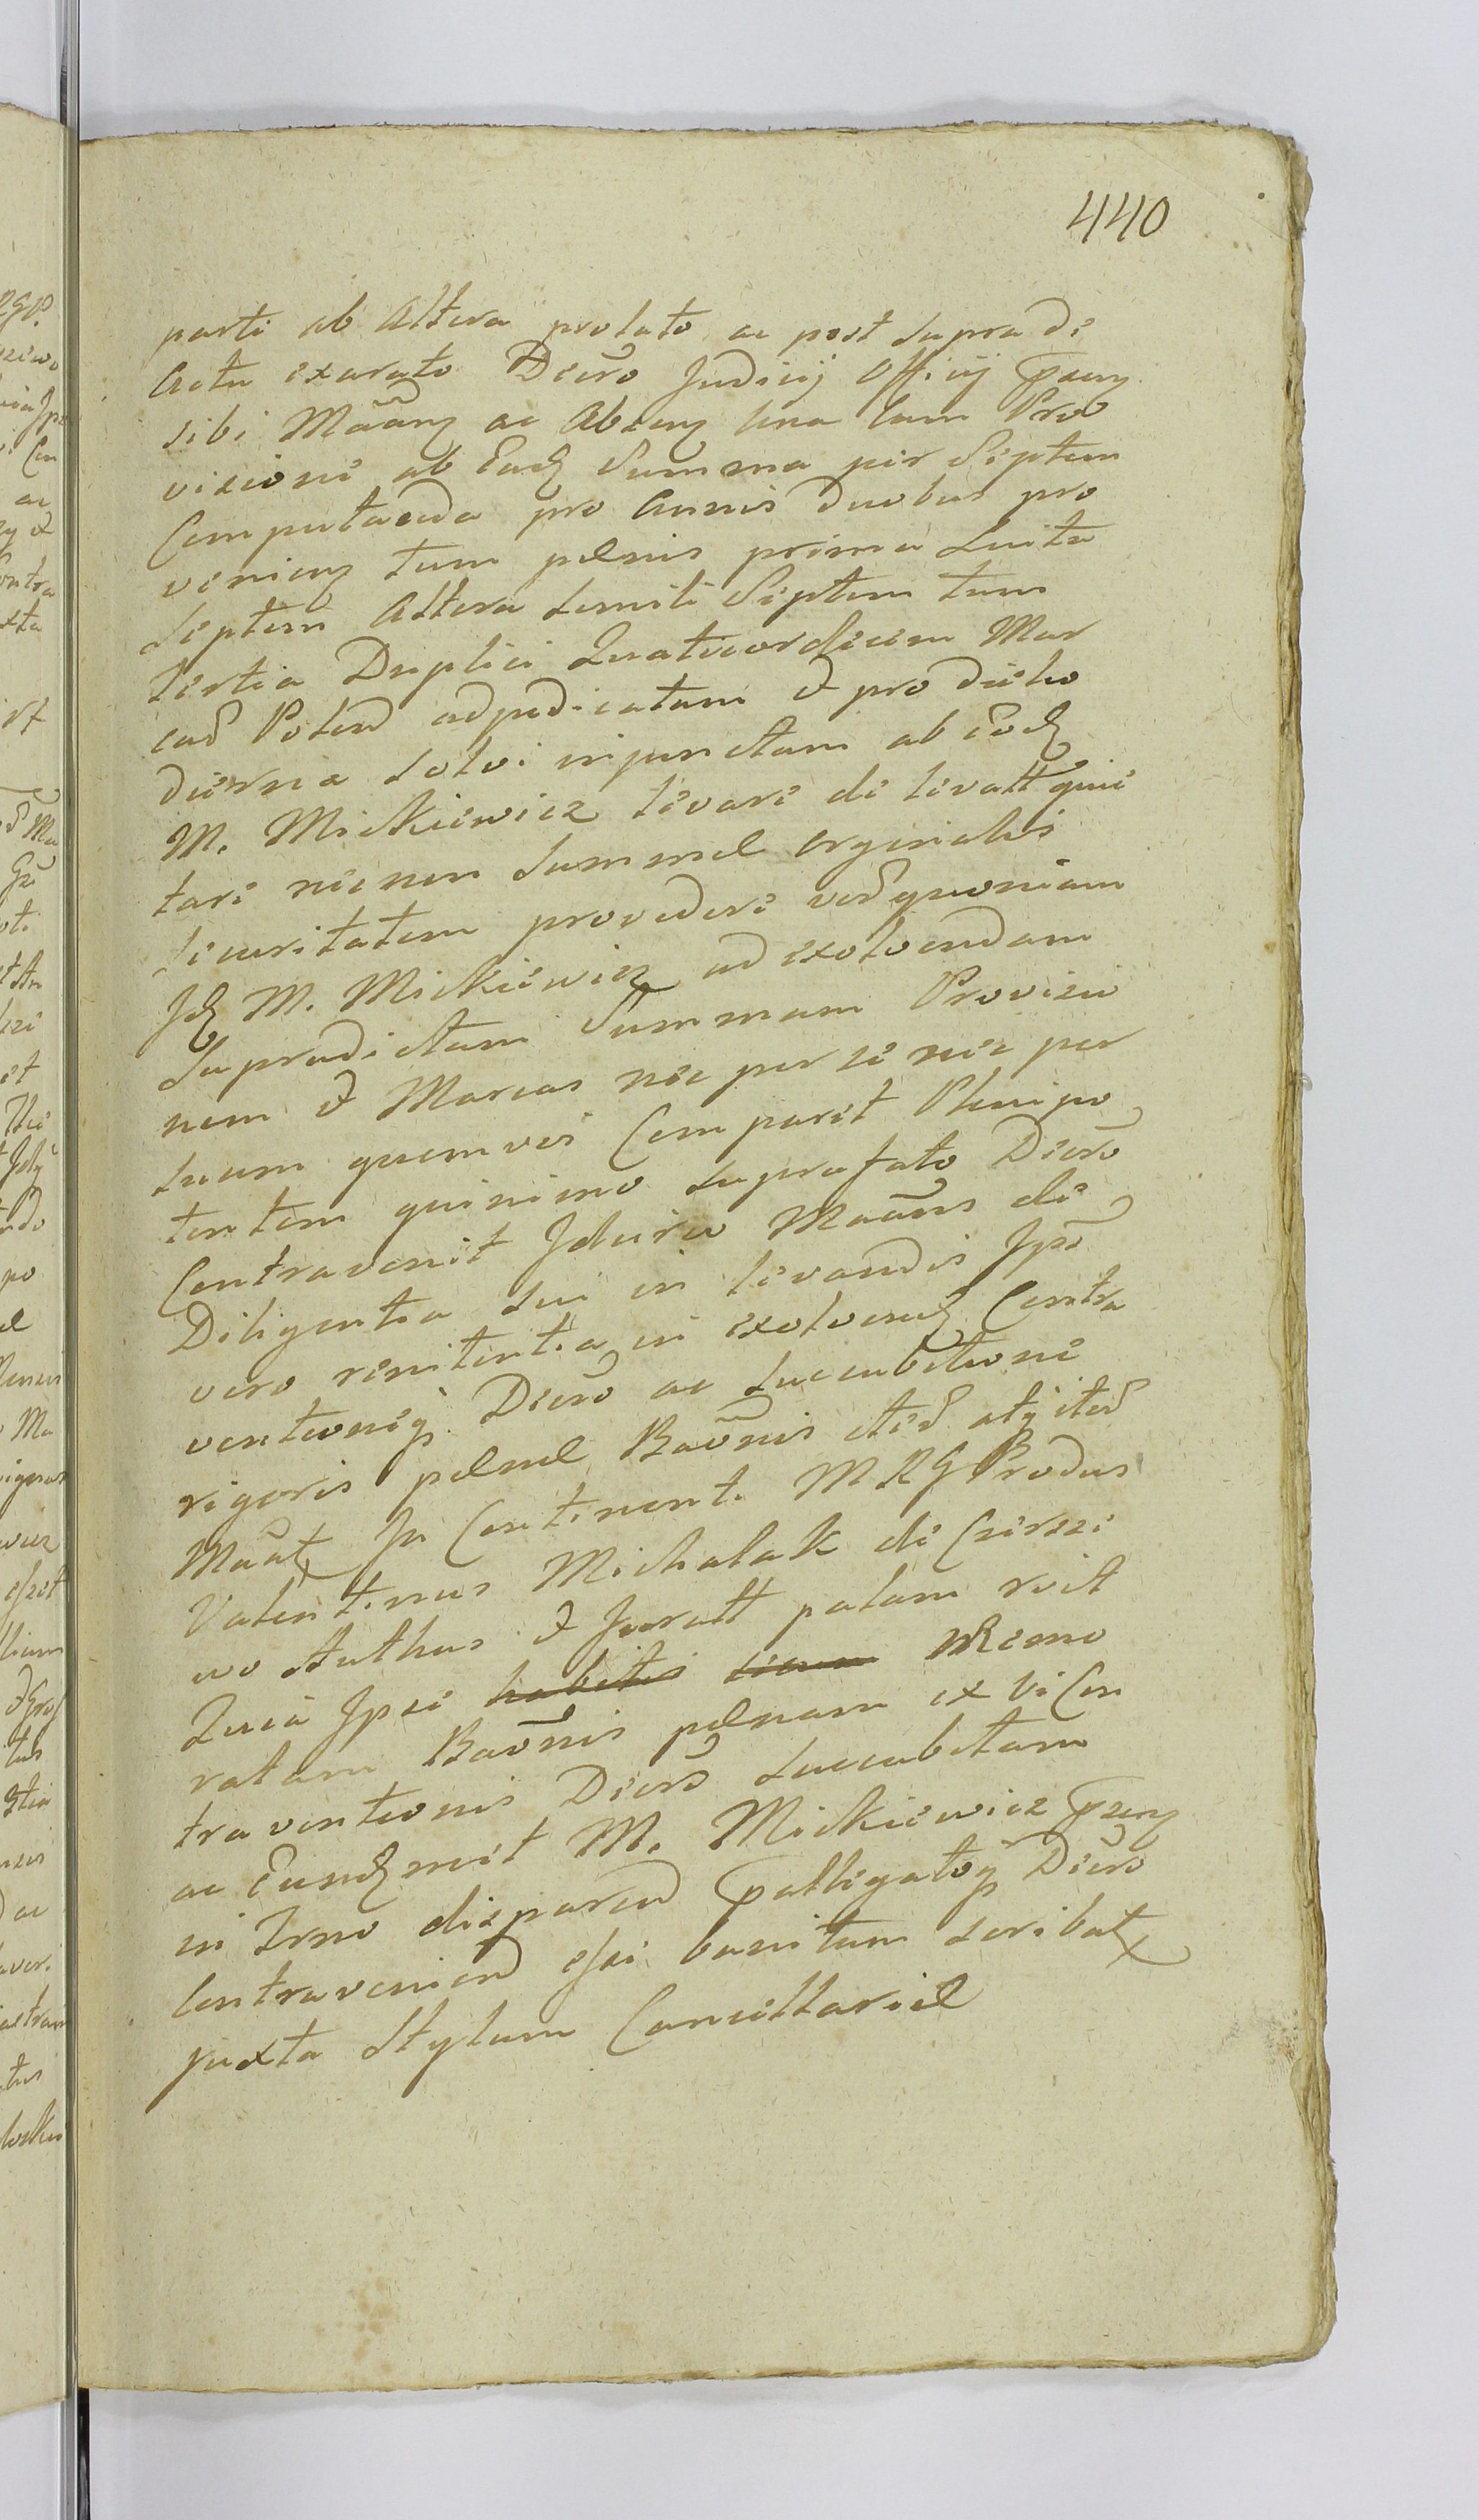 440
parti ab Altera prolato ac post Supra di
Actu exarato Decro Judicij Officij
sibi ac Absenz una cum Pro
visione ab Eadz Summa per Septem
Computaada pro Annis duobus pro
venienz tum pænis prima Luita
Septem Altera Simili Septem tum
Tertia Duplici Quatuordecim Mar
cas Polend adjudicatam & pro die ho
dierna Solvi injunctam ab Eodz
M. Mickiewicz levare de levatt quie
tari necnon Summæ orginalis
Securitatem providere verd quoniam
Jdz M. Mickiewicz ad exolvendam
Supradictam Summam Provisio
nem & Marcas nec per se nec per
Suum quemvis Comparet Plenipo
tentem quinimo Suprafato Decro
Contravenit Jdcirco de
Diligentia Sui in levandis Jpse
vero renitentia in exolvendz Contra
ventionisq Decro ac Succubitione
rigoris pænæ Baonis
In Continenti M R G Produs
Valentinus Michalak de Czerszi
wo Authus & Juratt palam
Quia Jpse habitis Memo
ratam Baonis pænam ex vi Con
traventionis Decro Succubitam
ac Eundz M. Mickiewicz
in Trno disparend Decro
Contraveniend esse banitum Scribatx
juxta Stylum Cancellariæ